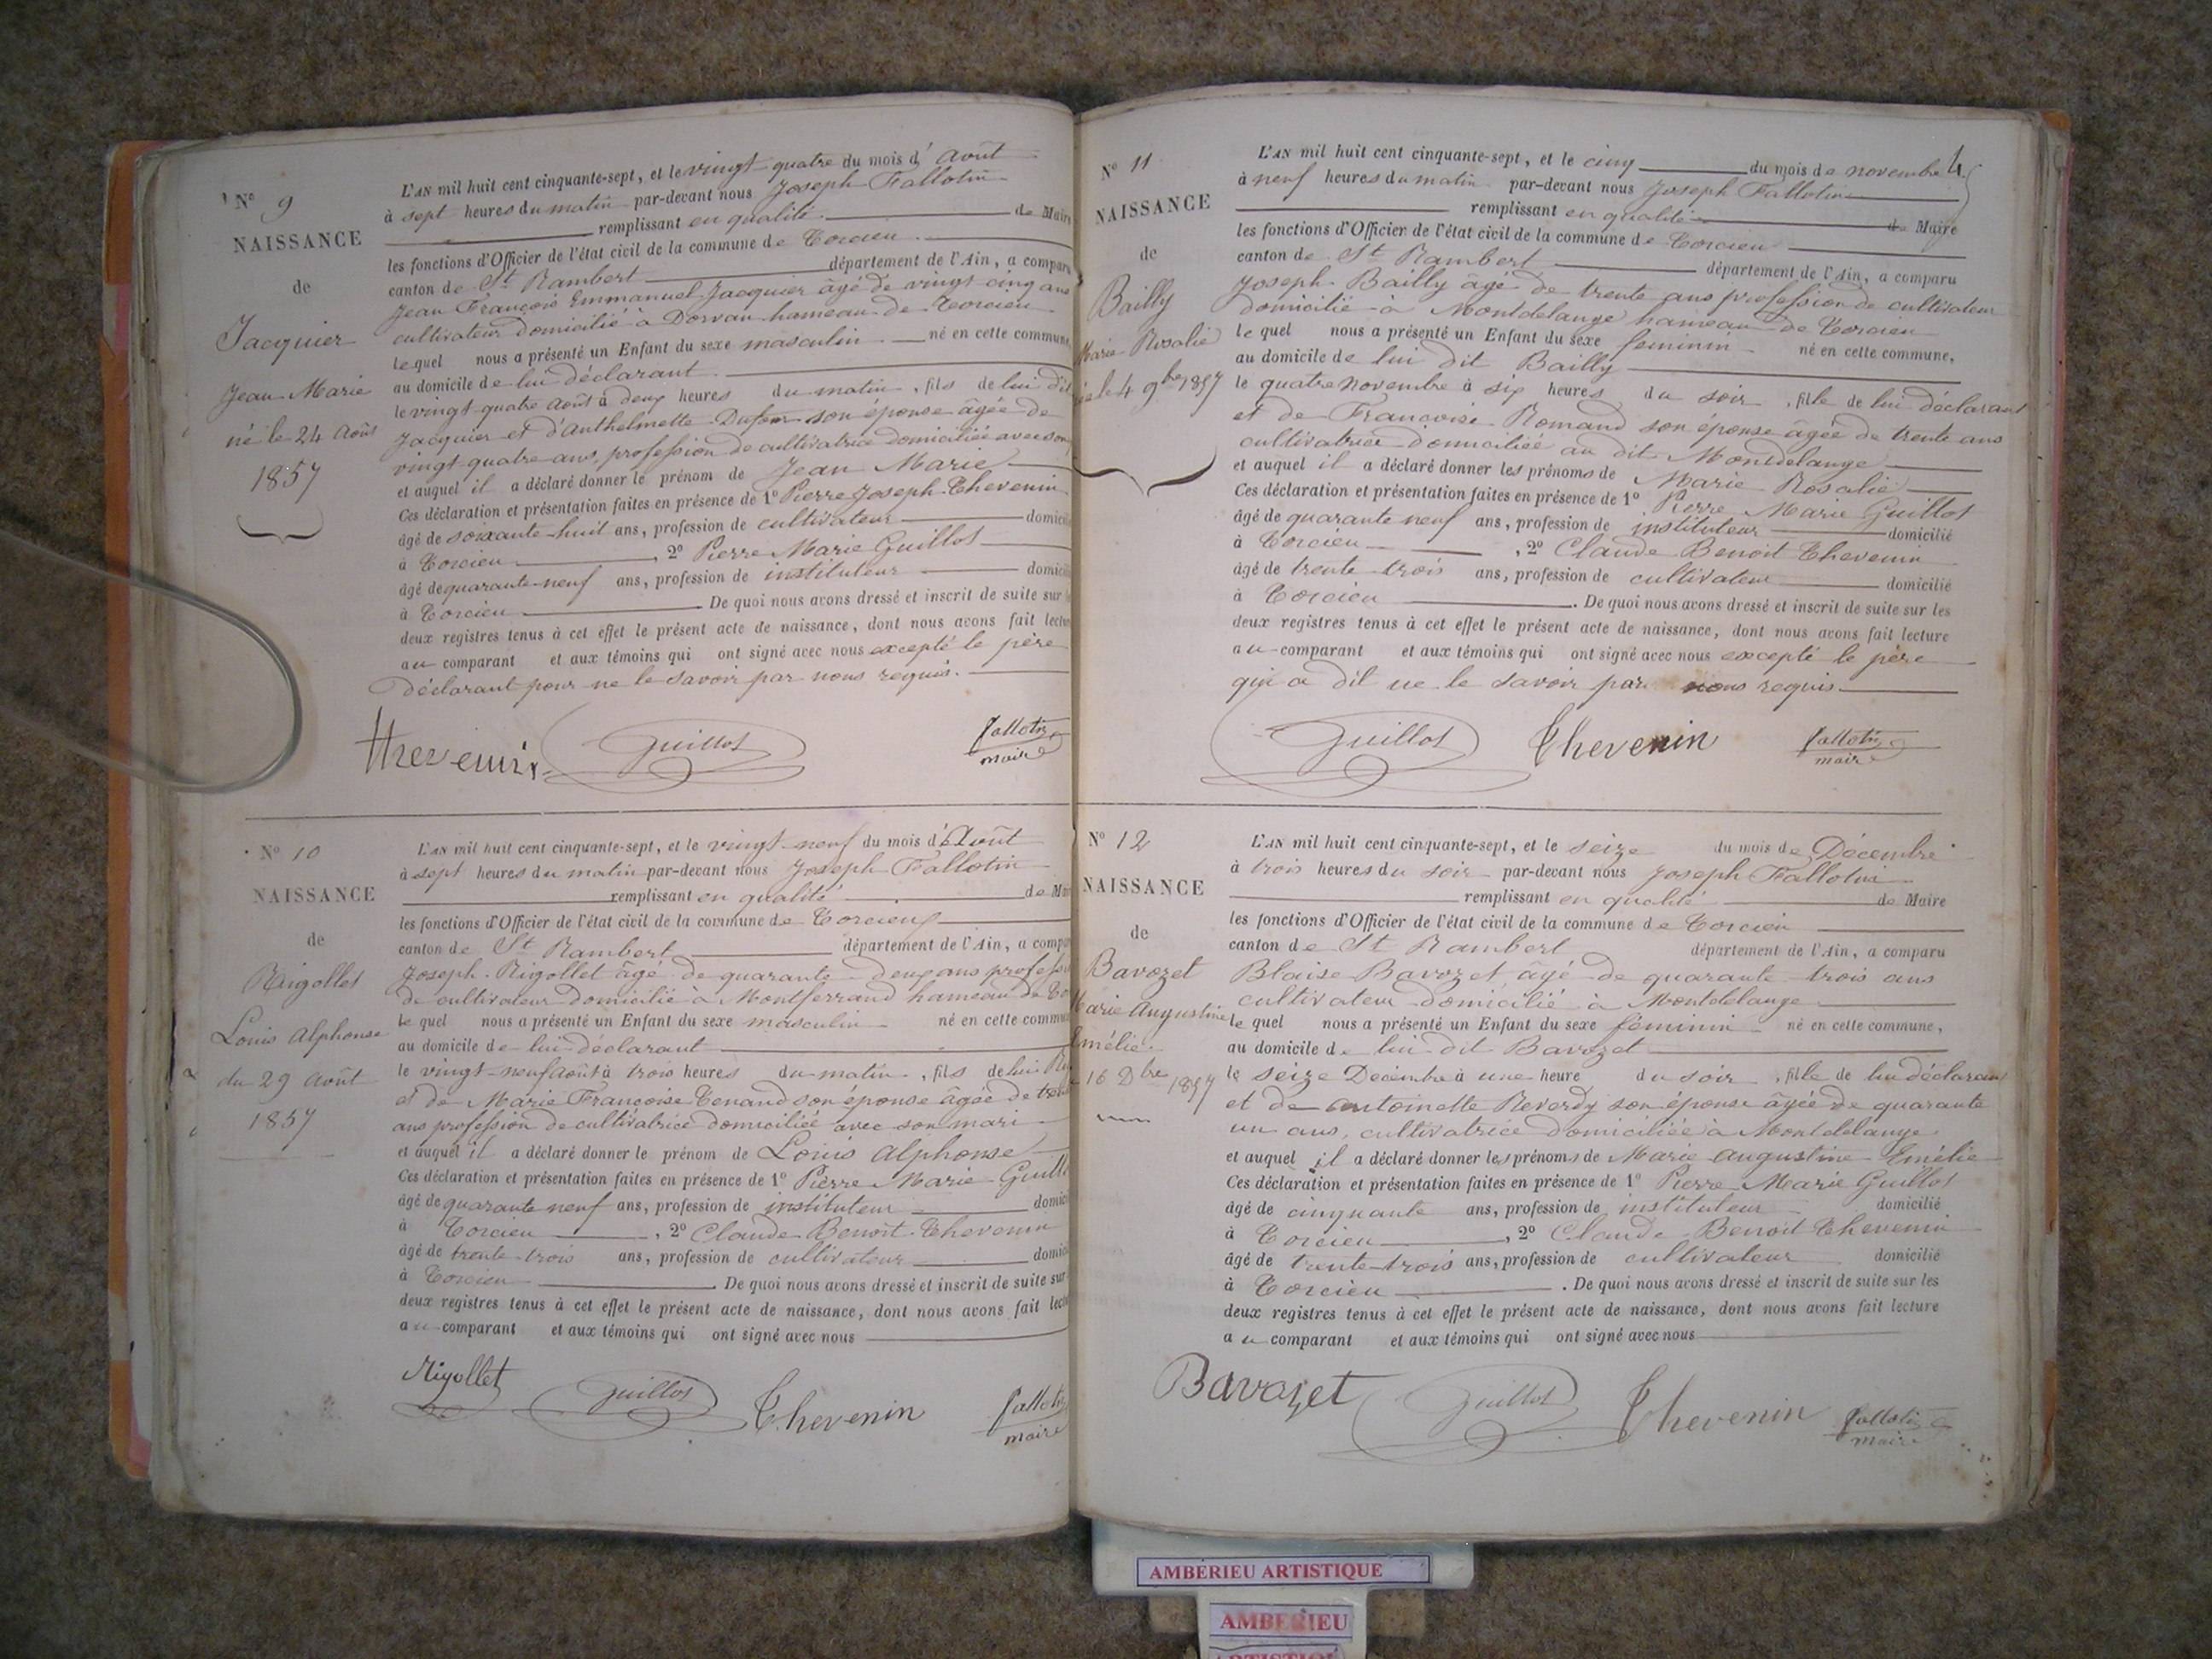 N° 9
NAISSANCE
de
Jacquier
Jean Marie
né le 24 Août
1857
L'AN mil huit cent cinquante-sept, et le vingt quatre du mois d'Août
à sept heures du matin par-devant nous Joseph Fallotin
remplissant en qualité de Maire
les fonctions d'Officier de l'état civil de la commune de Torcieu
canton de St Rambert département de l'Ain, a comparu
Jean François Emmanuel Jacquier âgé de vingt cinq ans
cultivateur domicilié à Dorvan hameau de Torcieu
Lequel nous a présenté un Enfant du sexe masculin né en cette commune,
au domicile de lui déclarant
le vingt quatre Août à deux heures du matin, fils de lui dit
Jacquier et d'Anthelmette Dufour son épouse âgée de
vingt quatre ans, profession de cultivatrice domiciliée avec son
et auquel il a déclaré donner le prénom de Jean Marie
Ces déclaration et présentation faites en présence de 1° Pierre Joseph Thevenin
âgé de soixante-huit ans, profession de cultivateur domicilié
à Torcieu, 2° Pierre Marie Guillot
âgé de quarante-neuf ans, profession de instituteur domicilié
à Torcieu. De quoi nous avons dressé et inscrit de suite sur
deux registres tenus à cet effet le présent acte de naissance, dont nous avons fait lecture
au comparant et aux témoins qui ont signé avec nous excepté le père
déclarant pour ne le savoir par nous requis.
thevenin Guillot fallotin
maire
N° 10
NAISSANCE
de
Rigollet
Louis Alphonse
du 29 Août
1857
L'AN mil huit cent cinquante-sept, et le vingt-neuf du mois d'Août
à sept heures du matin par-devant nous Joseph Fallotin
remplissant en qualité de Maire
les fonctions d'Officier de l'état civil de la commune de Torcieu
canton de St Rambert département de l'Ain, a comparu
Joseph Rigollet âgé de quarante-deux ans profession
de cultivateur domicilié à Montferrand hameau de
Lequel nous a présenté un Enfant du sexe masculin né en cette commune
au domicile de lui déclarant
le vingt-neuf Août à trois heures du matin, fils de lui
et de Marie Françoise Tenand son épouse âgée de
ans profession de cultivatrice domiciliée avec son mari
et auquel il a déclaré donner le prénom de Louis Alphonse
Ces déclaration et présentation faites en présence de 1° Pierre Marie Guillot
âgé de quarante neuf ans, profession de instituteur domicilié
à Torcieu, 2° Claude Benoit Thevenin
âgé de trente-trois ans, profession de cultivateur domicilié
à Torcieu. De quoi nous avons dressé et inscrit de suite sur
deux registres tenus à cet effet le présent acte de naissance, dont nous avons fait lecture
au comparant et aux témoins qui ont signé avec nous
Rigollet Guillot Thevenin fallotin
maire
4
N° 11
NAISSANCE
de
Bailly
Marie Rosalie
née le 4 9bre 1857
L'AN mil huit cent cinquante-sept, et le cinq du mois de novembre
à neuf heures du matin par-devant nous Joseph Fallotin
remplissant en qualité de Maire
les fonctions d'Officier de l'état civil de la commune de Torcieu
canton de St Rambert département de l'Ain, a comparu
Joseph Bailly âgé de trente ans profession de cultivateur
domicilié à Montdelange hameau de Torcieu
Lequel nous a présenté un Enfant du sexe féminin né en cette commune,
au domicile de lui dit Bailly
le quatre novembre à six heures du soir, fille de lui déclarant
et de Françoise Romand son épouse âgée de trente ans
cultivatrice domiciliée au dit Montdelange
et auquel il a déclaré donner les prénoms de Marie Rosalie
Ces déclaration et présentation faites en présence de 1° Pierre Marie Guillot
âgé de quarante neuf ans, profession de instituteur domicilié
à Torcieu, 2° Claude Benoit Thevenin
âgé de trente-trois ans, profession de cultivateur domicilié
à Torcieu. De quoi nous avons dressé et inscrit de suite sur les
deux registres tenus à cet effet le présent acte de naissance, dont nous avons fait lecture
au comparant et aux témoins qui ont signé avec nous excepté le père
qui a dit ne le savoir par nous requis.
Guillot Thevenin fallotin
maire
N° 12
NAISSANCE
de
Bavozet
Marie Augustine
Emélie
16 Dbre 1857
L'AN mil huit cent cinquante-sept, et le seize du mois de Décembre
à trois heures du soir par-devant nous Joseph Fallotin
remplissant en qualité de Maire
les fonctions d'Officier de l'état civil de la commune de Torcieu
canton de St Rambert département de l'Ain, a comparu
Blaise Bavozet âgé de quarante-trois ans
cultivateur domicilié à Montdelange
Lequel nous a présenté un Enfant du sexe féminin né en cette commune,
au domicile de lui dit Bavozet
le seize Décembre à une heure du soir, fille de lui déclarant
et de antoinette Reverdy son épouse âgée de quarante
un ans, cultivatrice domiciliée à Montdelange
et auquel il a déclaré donner les prénoms de Marie Augustine Emélie
Ces déclaration et présentation faites en présence de 1° Pierre Marie Guillot
âgé de cinquante ans, profession de instituteur domicilié
à Torcieu, 2° Claude Benoit Thevenin
âgé de trente-trois ans, profession de cultivateur domicilié
à Torcieu. De quoi nous avons dressé et inscrit de suite sur les
deux registres tenus à cet effet le présent acte de naissance, dont nous avons fait lecture
au comparant et aux témoins qui ont signé avec nous
Bavozet Guillot Thevenin fallotin
maire
AMBÉRIEU ARTISTIQUE
AMBERIEU
ARTISTIQUE